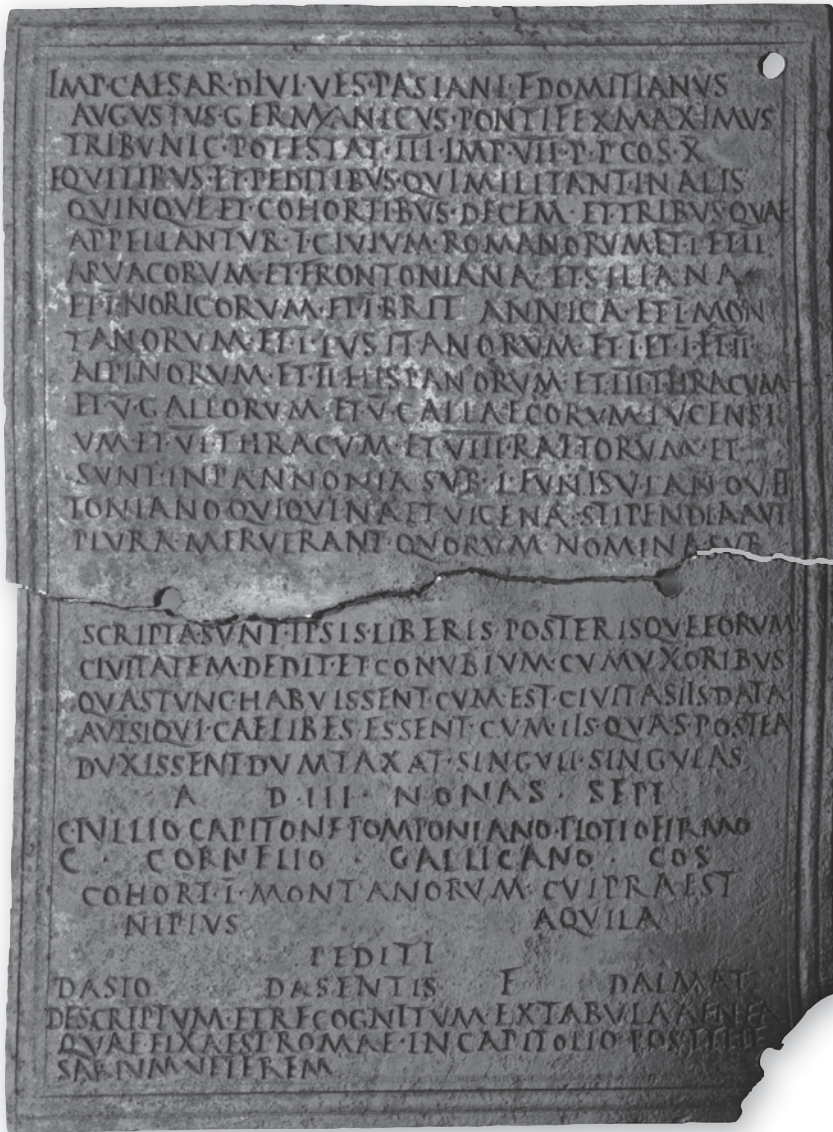 IMP·CAESAR·DIVI·VESPASIANI·F·DOMITIANVS
AVGVSTVS·GERMANICVS·PONTIFEX MAXIMVS
TRIBVNIC·POTESTAT·III·IMP·VII·P·P·COS·X
EQVITIBVS·ET·PEDITIBVS·QVI MILITANT·IN ALIS
QVINQVE ET·COHORTIBVS·DECEM·ET·TRIBVS·QVAE
APPELLANTVR·I·CIVIVM·ROMANORVM ET·I·ET II
ARVACORVM·ET·FRONTONIANA·ET·SILIANA
ET·I·NORICORVM·ET·I·BRITANNICA·ET·I·MON
TANORVM·ET·I·LVSITANORVM·ET·I·ET·I·ET·II
ALPINORVM·ET·II·HISPANORVM·ET·III·THRACVM
ET·V·GALLORVM·ET·V·CALLAECORVM·LVCENSI
VM·ET·VI·THRACVM·ET·VIII·RAETORVM·ET
SVNT·IN PANNONIA SVB·L·FVNISVLANO VET
TONIANO QVI QVINA ET VICENA·STIPENDIA AVT
PLVRA·MERVERANT·QVORVM·NOMINA SVB
SCRIPTA SVNT·IPSIS·LIBERIS·POSTERISQVE EORVM
CIVITATEM·DEDIT·ET CONVBIVM·CVM VXORIBVS
QVAS TVNC HABVISSENT·CVM·EST·CIVITAS IIS·DATA
AVT SI QVI·CAELIBES ESSENT·CVM·IIS·QVAS·POSTEA
DVXISSENT DVMTAXAT·SINGVLI·SINGVLAS
A D·III·NONAS·SEPT
C·IVLLIO CAPITONE POMPONIANO·PLOTIO FIRMO
C·CORNELIO·GALLICANO·COS
COHORT·I·MONTANORVM·CVI PRAEST
NIPIVS AQVILA
PEDITI
DASIO DASENTIS F DALMAT
DESCRIPTVM·ET RECOGNITVM EX TABVLA AENEA
QVAE FIXA EST ROMAE·IN CAPITOLIO